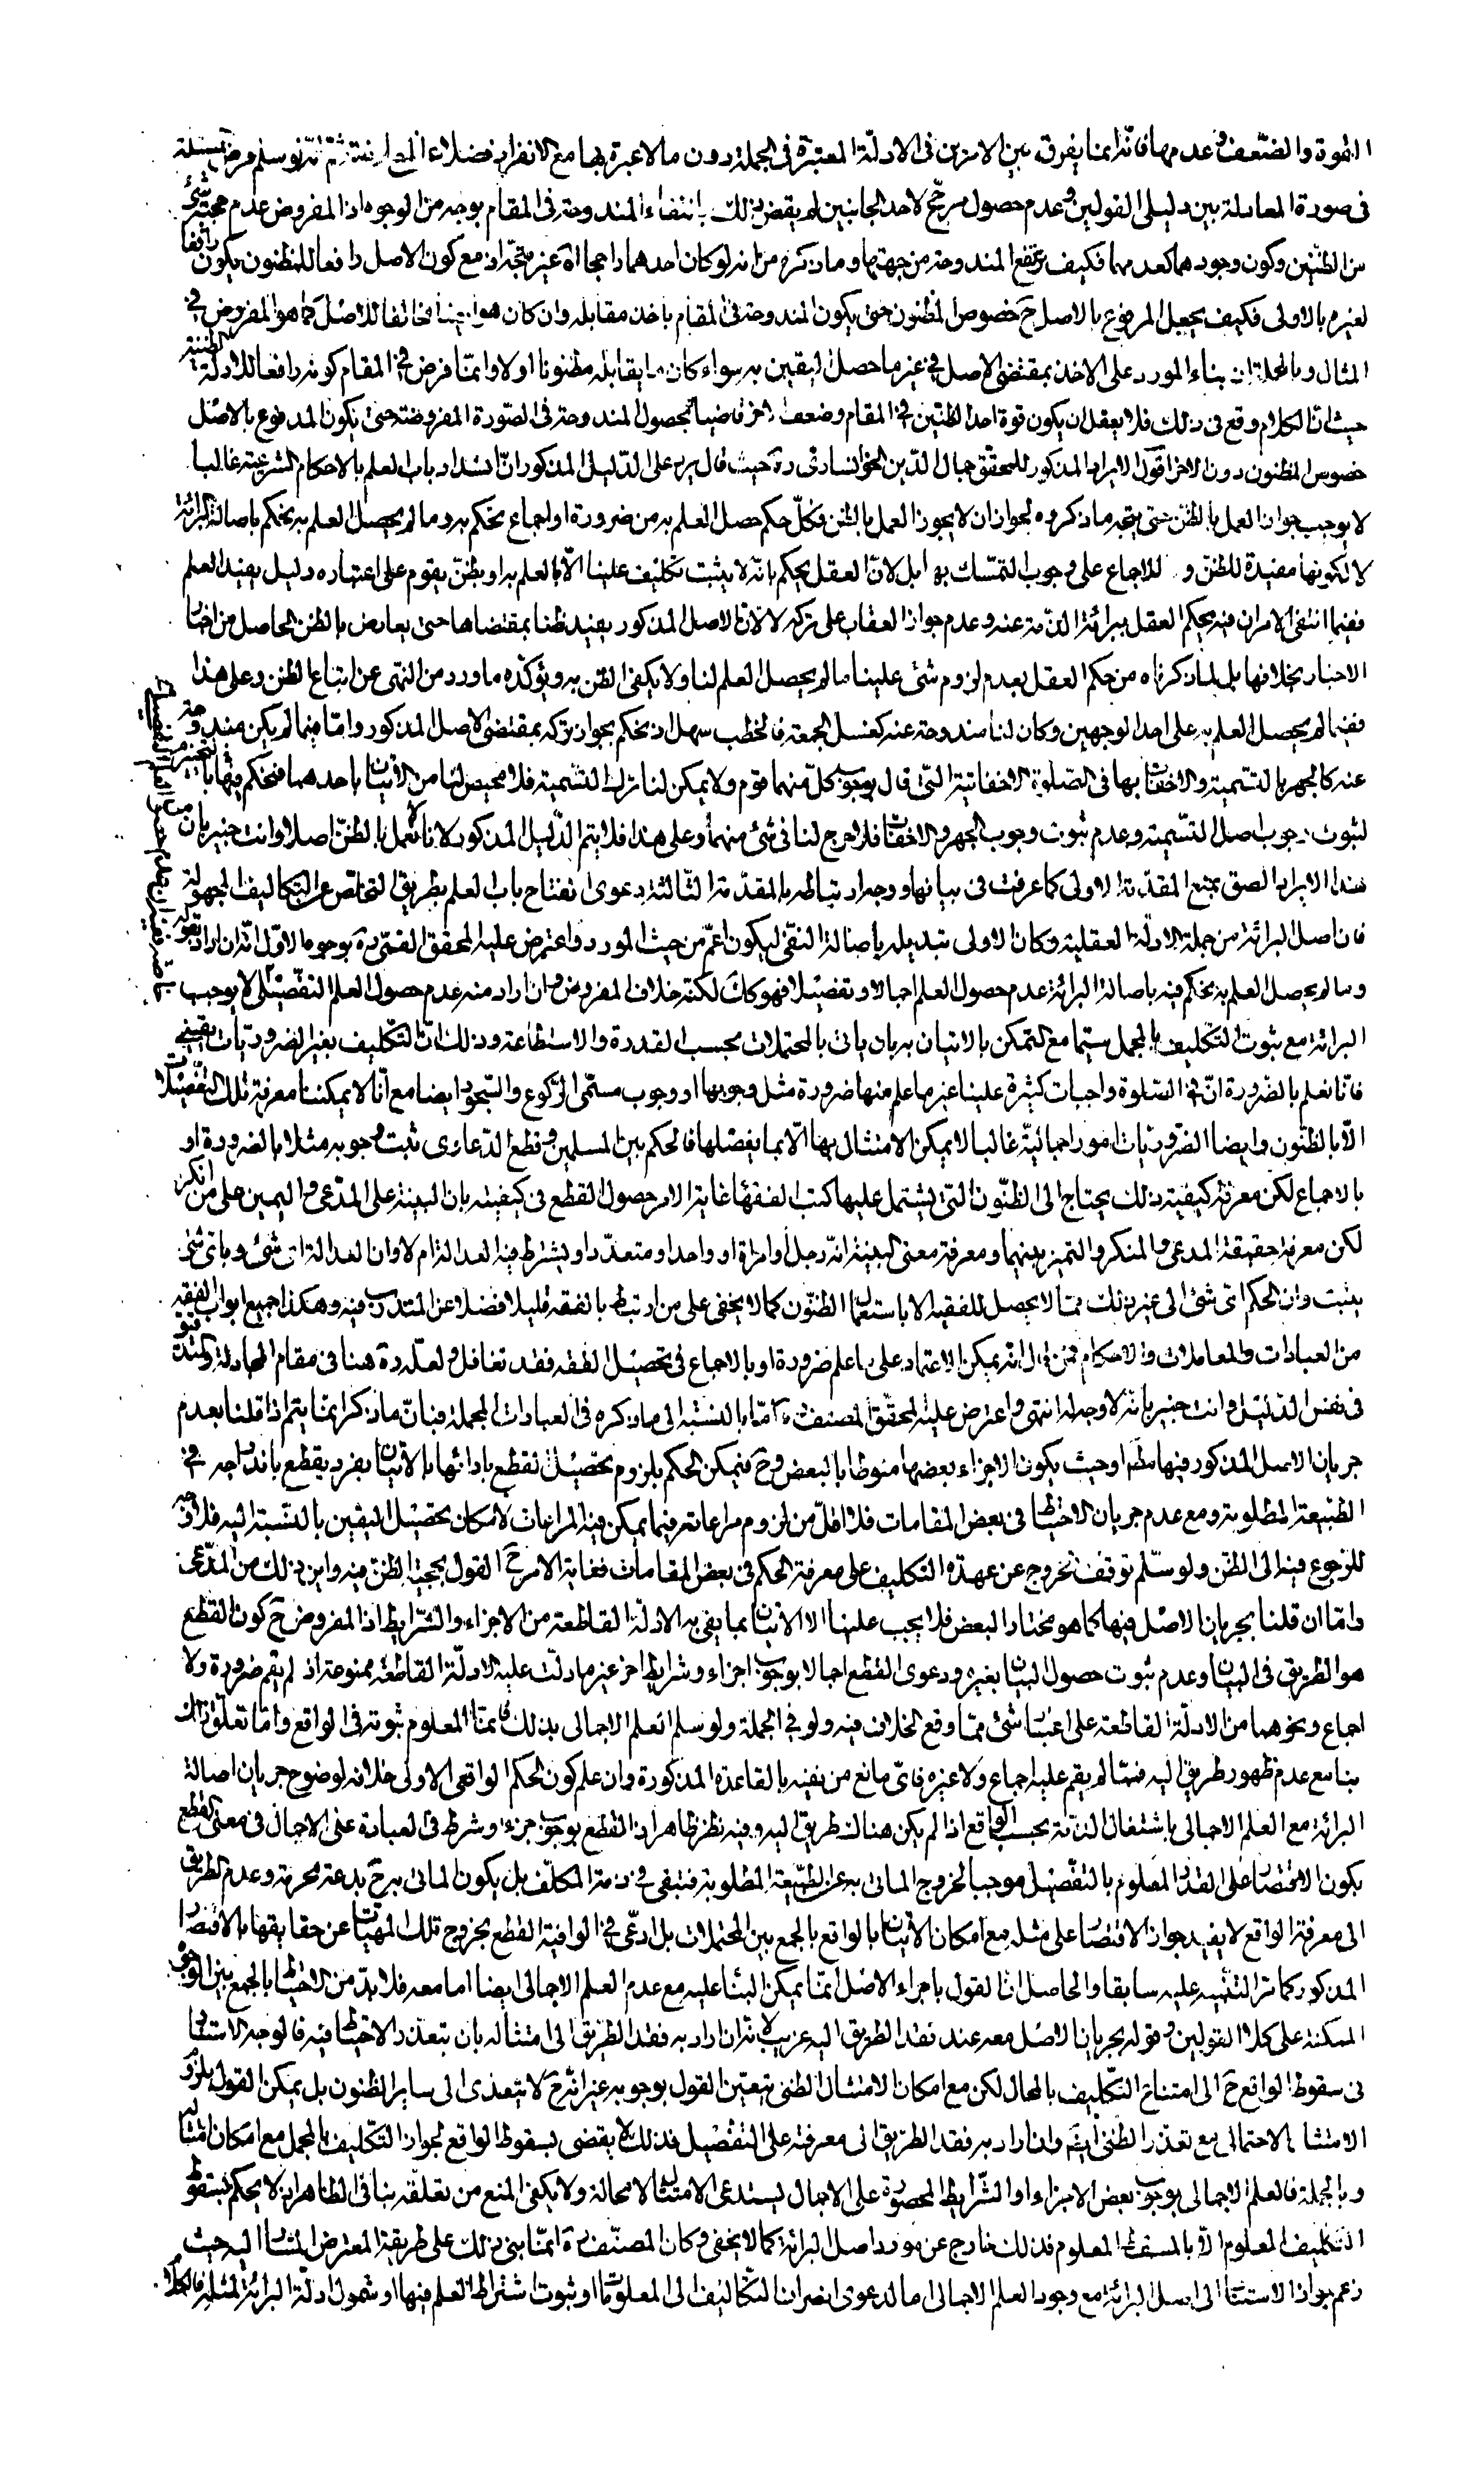 القوة والضعف وعدمها فانه انما يفرق بين الامرين فى الادلة المعتبرة فى الجملة دون ما لا عبرة بها مع الانفراد فضلا عن المعارضة ثم انه لو سلم فرض المسئلة
فى صورة المعادلة بين دليلى القولين وعدم حصول مرجح لاحد الجانبين لم يقض ذلك بانتفاء المندوحة فى المقام بوجه من الوجوه اذ المفروض عدم حجية شئ
من الظنين وكون وجودهما كعدمهما فكيف يرتفع المندوحة من جهتهما وما ذكره من انه لو كان احدهما راجحا اه غير متجه اذ مع كون الاصل دافعا للمظنون يكون دافعا
لغيره بالاولى فكيف يجعل المرفوع بالاصل ح خصوص المظنون حتى يكون المندوحة فى المقام باخذ مقابله وان كان هو ايضا مخالفا للاصل كما هو المفروض فى
المثال وبالجملة ان بناء المورد على الاخذ بمقتضى الاصل فى غير ما حصل اليقين به سواء كان ما يقابله مظنونا اولا وانما فرض فى المقام كونه رافعا للادلة الظنية
حيث ان الكلام وقع فى ذلك فلا يعقل ان يكون قوة احد الظنين فى المقام وضعف الاخر قاضيا بحصول المندوحة فى الصورة المفروضة حتى يكون المدفوع بالاصل
خصوص المظنون دون الاخر اقول الايراد المذكور للمحقق جمال الدين الخوانسارى ره حيث قال يرد على الدليل المذكور ان انسداد باب العلم بالاحكام الشرعية غالبا
لا يوجب جواز العمل بالظن حتى يتجه ما ذكروه لجواز ان لا يجوز العمل بالظن فكل حكم حصل العلم به من ضرورة او اجماع يحكم به وما لم يحصل العلم به يحكم باصالة البرائة
لا لكونها مفيدة للظن و للاجماع على وجوب التمسك بها بل لان العقل يحكم بانه لا يثبت تكليف علينا الا بالعلم به او بظن يقوم على اعتباره دليل يفيد العلم
ففيما انتفى الامران فيه يحكم العقل ببرائة الذمة عنه وعدم جواز العقاب على تركه لا لان الاصل المذكور يفيد ظنا بمقتضاها حتى يعارض بالظن الحاصل من اخبار
الاحاد بخلافها بل لما ذكرناه من حكم العقل بعدم لزوم شئ علينا ما لم يحصل العلم لنا ولا يكفى الظن به ويؤكده ما ورد من النهى عن اتباع الظن وعلى هذا
ففيما لم يحصل العلم به على احد الوجهين وكان لنا مندوحة عنه كغسل الجمعة فالخطب سهل اذ نحكم بجواز تركه بمقتضى الاصل المذكور واما فيما لم يكن مندوحة
عنه كالجهر بالتسمية والاخفات بها فى الصلوة الاخفاتية التى قال بوجوب كل منهما قوم ولا يمكن لنا ترك التسمية فلا محيص لنا من الاتيان باحدهما فنحكم فيها بالتخيير
لثبوت وجوب اصل التسمية وعدم ثبوت وجوب الجهر والاخفات فلا حرج لنا فى شئ منهما وعلى هذا فلا يتم الدليل المذكور لانا لا نعمل بالظن اصلا وانت خبير بان
هذا الايراد الصق بمنع المقدمة الاولى كما عرفت فى بيانها ووجه ارتباطه بالمقدمة الثالثة دعوى انفتاح باب العلم بطريق التخلص عن التكاليف المجهولة
فان اصل البرائة من جملة الادلة العقلية وكان الاولى تبديله باصالة النفى ليكون اعم من حيث المورد واعترض عليه المحقق القمى ره بوجوه الاول انه ان اراد بقوله
وما لم يحصل العلم به يحكم فيه باصالة البرائة عدم حصول العلم اجمالا وتفصيلا فهو كك لكنه خلاف المفروض وان اراد منه عدم حصول العلم التفصيلى لا يوجب
البرائة مع ثبوت التكليف بالمجمل سيما مع التمكن بالاتيان به بان ياتى بالمحتملات بحسب القدرة والاستطاعة وذلك ان التكليف بغير الضروريات يقينى
فانا نعلم بالضرورة ان فى الصلوة واجبات كثيرة علينا غير ما علم منها ضرورة مثل وجوبها او وجوب مسمى الركوع والسجود ايضا مع انا لا يمكننا معرفة تلك التفصيلات
الا بالظنون وايضا الضروريات امور اجمالية غالبا لا يمكن الامتثال بها الا بما يفصلها فالحكم بين المسلمين وقطع الدعاوى ثبت وجوبه مثلا بالضرورة او
بالاجماع لكن معرفة كيفية ذلك يحتاج الى الظنون التى يشتمل عليها كتب الفقهاء غاية الامر حصول القطع فى كيفيته بان البينة على المدعى واليمين على من انكر
لكن معرفة حقيقة المدعى والمنكر والتميز بينهما ومعرفة معنى البينة انه رجل او امراة او واحد او متعدد او يشترط فيه العدالة ام لا وان العدالة اى شئ وباى شئ
يثبت وان الحكم اى شئ الى غير ذلك مما لا يحصل للفقيه الا باستعمال الظنون كما لا يخفى على من ارتبط بالفقه قليلا فضلا عن المتدرب فيه وهكذا جميع ابواب الفقه
من العبادات والمعاملات والاحكام فمن قال انه يمكن الاعتماد على ما علم ضرورة او بالاجماع فى تحصيل الفقه فقد تغافل ولعله ره هنا فى مقام المجادلة
فى نفس الدليل وانت خبير بانه لا وجه له انتهى واعترض عليه المحقق المصنف ره اما بالنسبة الى ما ذكره فى العبادات المجملة فبان ما ذكر انما يتم اذا قلنا بعدم
جريان الاصل المذكور فيها مط او حيث يكون الاجزاء بعضها منوطا بالبعض وح فيمكن الحكم بلزوم تحصيل القطع بادائها بالاتيان بفرد يقطع باندراجه فى
الطبيعة المطلوبة ومع عدم جريان الاحتياط فى بعض المقامات فلا اقل من لزوم مراعاته فيما يمكن فيه المراعات لامكان تحصيل اليقين بالنسبة اليه فلا وجه
للرجوع فيه الى الظن ولو سلم توقف الخروج عن عهدة التكليف على معرفة الحكم فى بعض المقامات فغاية الامر ح القول بحجية الظن فيه واين ذلك من المدعى
واما ان قلنا بجريان الاصل فيها كما هو مختار البعض فلا يجب علينا الا الاتيان بما يفى به الادلة القاطعة من الاجزاء والشرايط اذ المفروض ح كون القطع
هو الطريق فى البيان وعدم ثبوت حصول البيان بغيره ودعوى القطع اجمالا بوجوب اجزاء وشرايط اخر غير ما دلت عليه الادلة القاطعة ممنوعة اذ لم يقم ضرورة ولا
اجماع ونحوهما من الادلة القاطعة على اعتبار شئ مما وقع الخلاف فيه ولو فى الجملة ولو سلم العلم الاجمالى بذلك فانما المعلوم ثبوته فى الواقع واما تعلق ذلك
بنا مع عدم ظهور طريق اليه فمما لم يقم عليه اجماع ولا غيره فاى مانع من نفيه بالقاعدة المذكورة وان علم كون الحكم الواقعى الاولى خلافه لوضوح جريان اصالة
البرائة مع العلم الاجمالى باشتغال الذمة بحسب الواقع اذا لم يكن هناك طريق اليه وفيه نظر ظاهر اذ القطع بوجوب جزء او شرط فى العبادة على الاجمال فى معنى القطع
بكون الاقتصار على القدر المعلوم بالتفصيل موجبا لخروج الماتى به عن الطبيعة المطلوبة فتبقى فى ذمة المكلف بل يكون الماتى به ح بدعة محرمة وعدم الطريق
الى معرفة الواقع لا يفيد جواز الاقتصار على مثله مع امكان الاتيان بالواقع بالجمع بين المحتملات بل ادعى فى الوافية القطع بخروج تلك المهيات عن حقايقها بالاقتصار
المذكور كما مر التنبيه عليه سابقا والحاصل ان القول باجراء الاصل انما يمكن البناء عليه مع عدم العلم الاجمالى ايضا اما معه فلا بد من الاحتياط بالجمع بين الوجوه
الممكنة على كلا القولين وقوله بجريان الاصل معه عند فقد الطريق اليه غريب لانه ان اراد به فقد الطريق الى امتثاله بان يتعذر الاحتياط فيه فالوجه الاستناد
فى سقوط الواقع ح الى امتناع التكليف بالمحال لكن مع امكان الامتثال الظنى يتعين القول بوجوبه غير انه ح لا يتعدى الى ساير الظنون بل يمكن القول بلزوم
الامتثال الاحتمالى مع تعذر الظنى ايضا وان اراد به فقد الطريق الى معرفته على التفصيل فذلك لا يقضى بسقوط الواقع لجواز التكليف بالمجمل مع امكان امتثاله
وبالجملة فالعلم الاجمالى بوجوب بعض الاجزاء او الشرايط المحصورة على الاجمال يستدعى الامتثال لا محالة ولا يكفى المنع من تعلقه بنا فى الظاهر اذ لا يحكم بسقوط
التكليف المعلوم الا بالمسقط المعلوم فذلك خارج عن مورد اصل البرائة كما لا يخفى وكان المصنف ره انما بنى ذلك على طريقة المعترض المشار اليه حيث
زعم جواز الاستناد الى اصل البرائة مع وجود العلم الاجمالى اما لدعوى انصراف التكاليف الى المعلومات او ثبوت اشتراط العلم فيها او شمول ادلة البرائة لمثله فالكلام